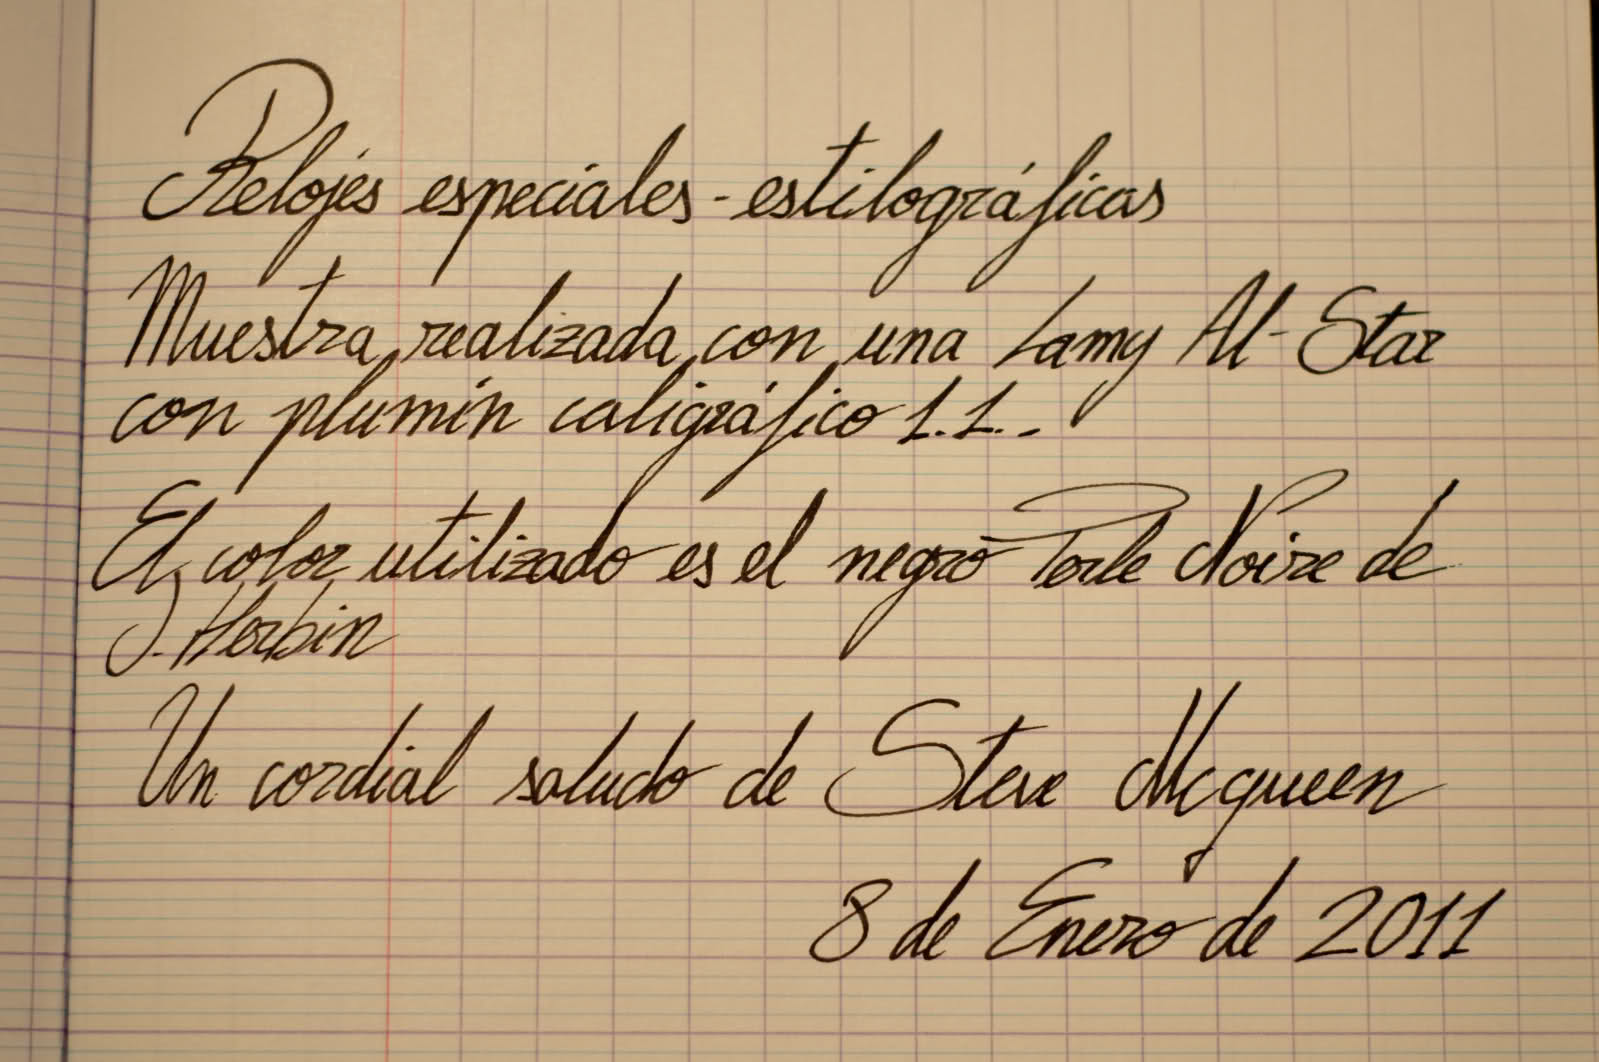 Relojes especiales - estilográficas
Muestra realizada con una Lamy Al-Star
con plumín caligráfico 1.1.-
El color utilizado es el negro Perle Noire de
J. Herbin
Un cordial saludo de Steve Mcqueen
8 de Enero de 2011